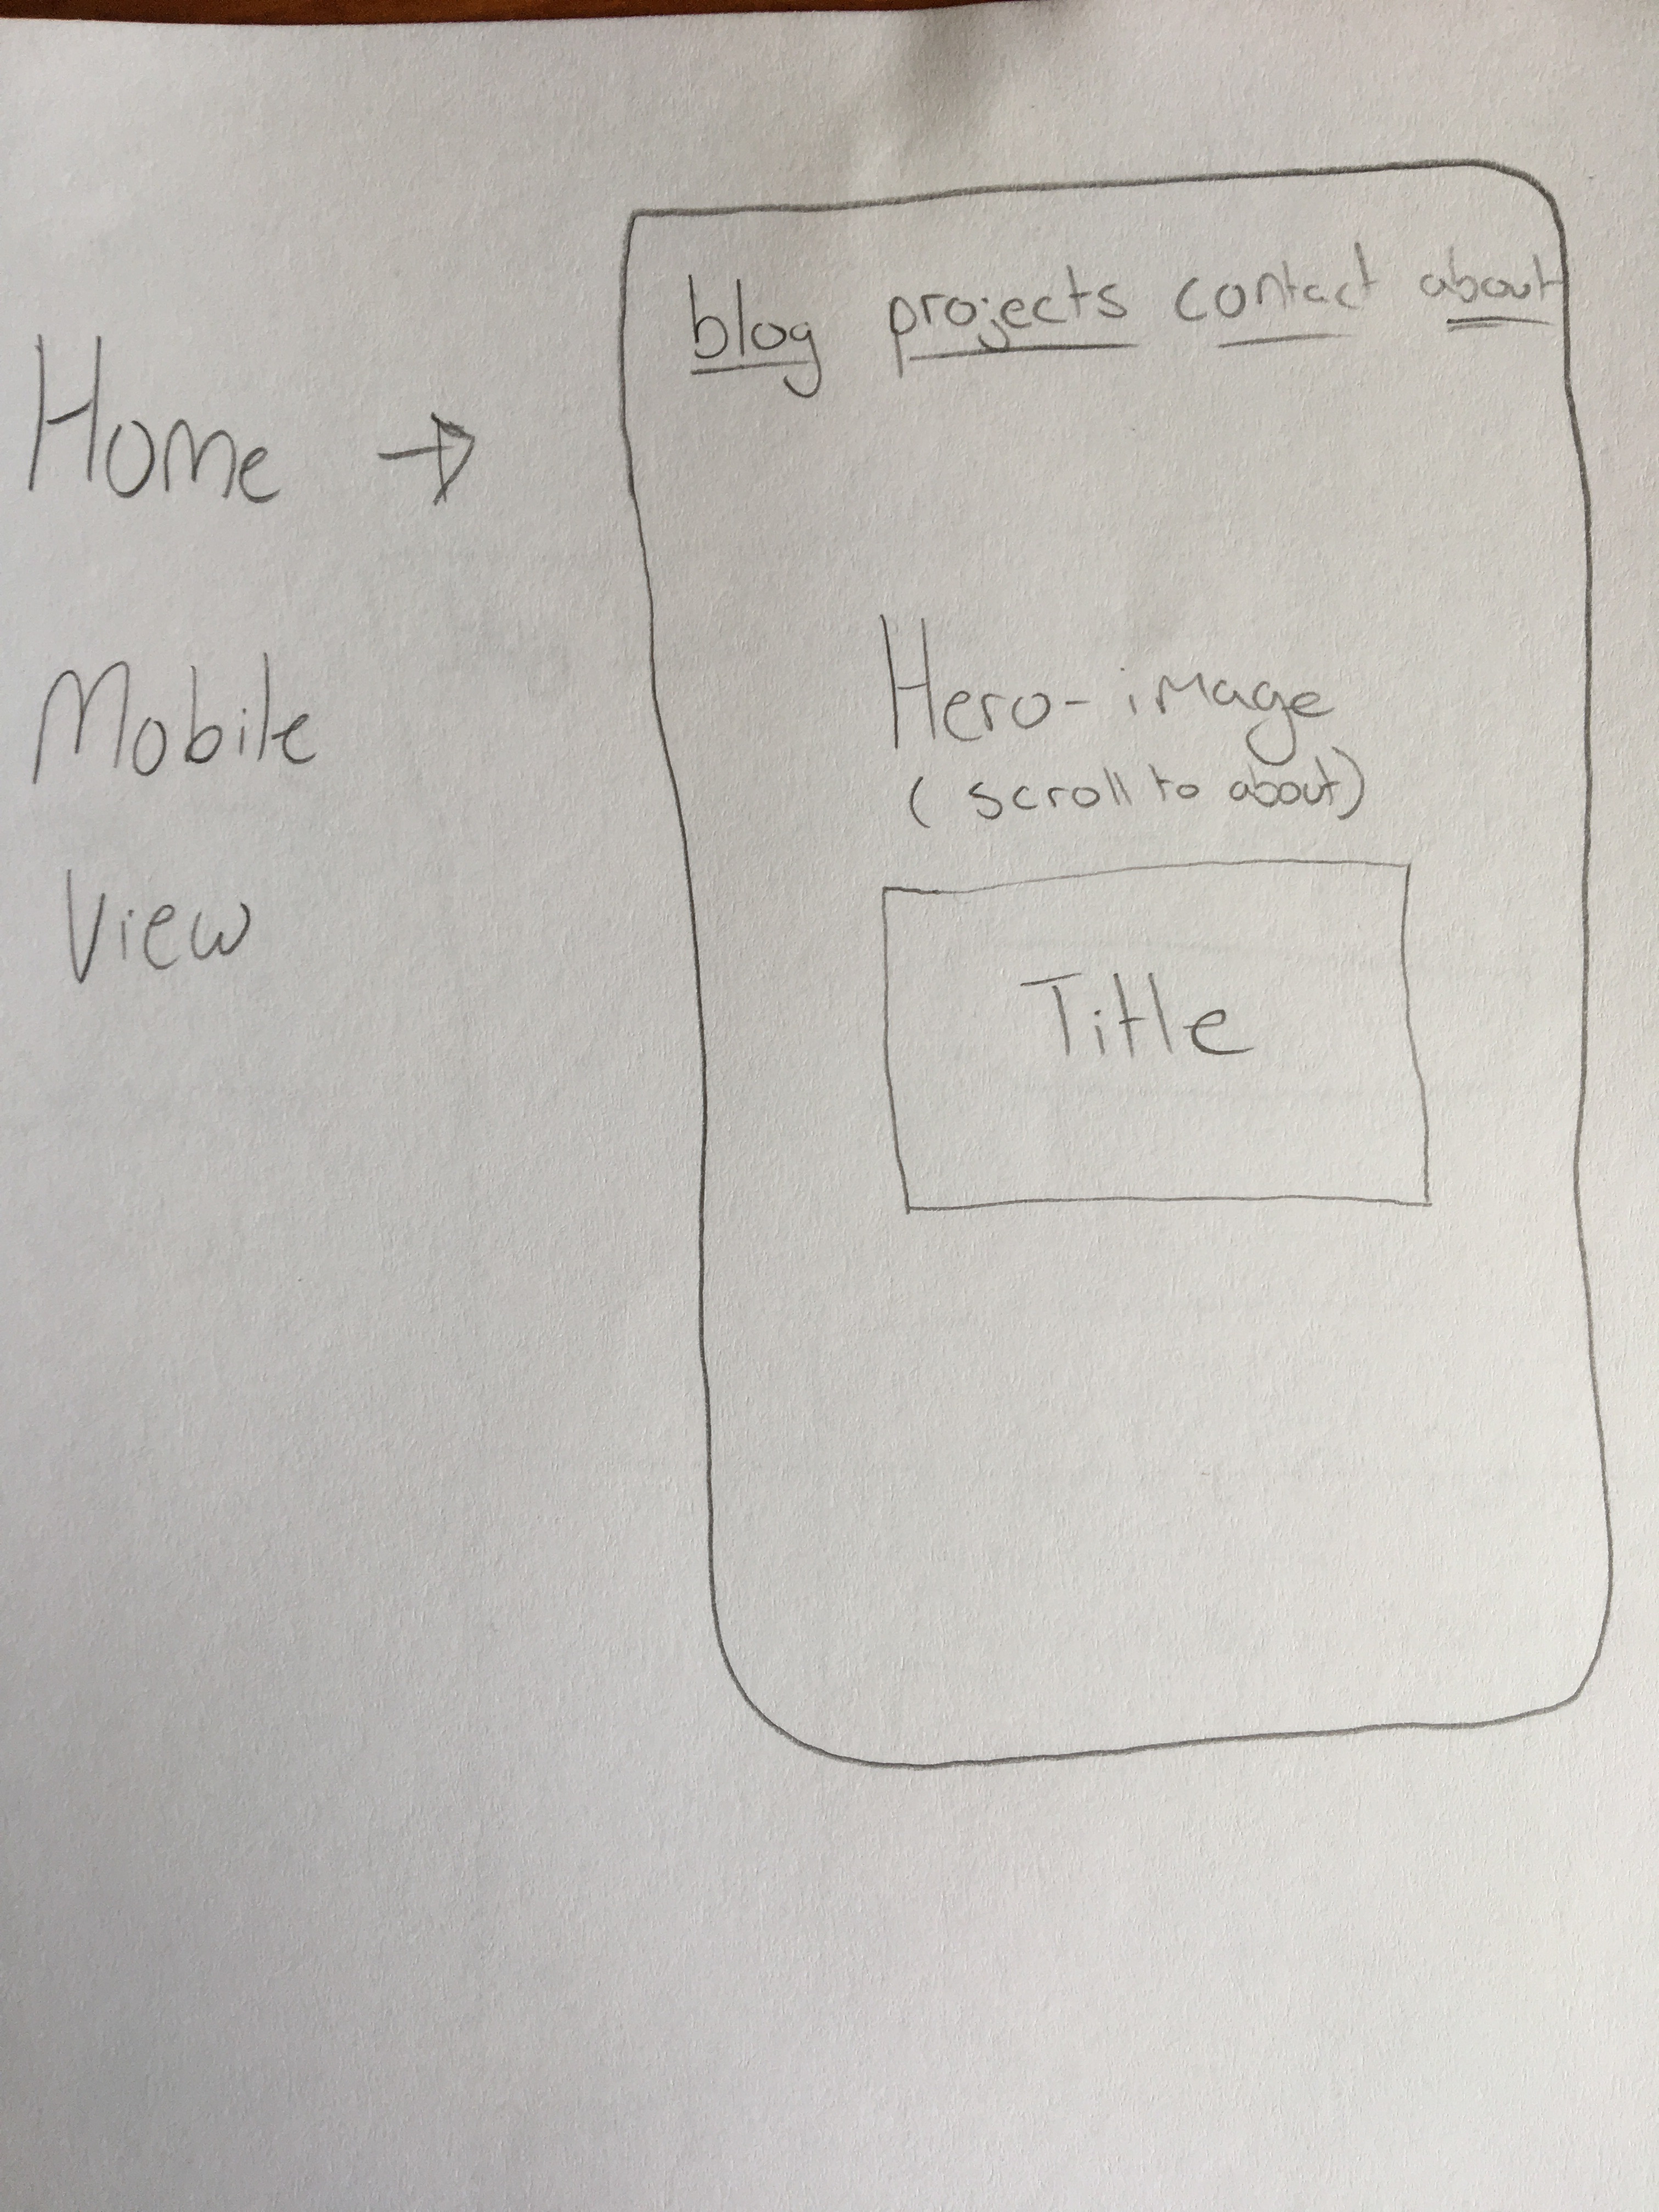 Home →
Mobile
View
blog projects contact about
Hero-image
(scroll to about)
Title